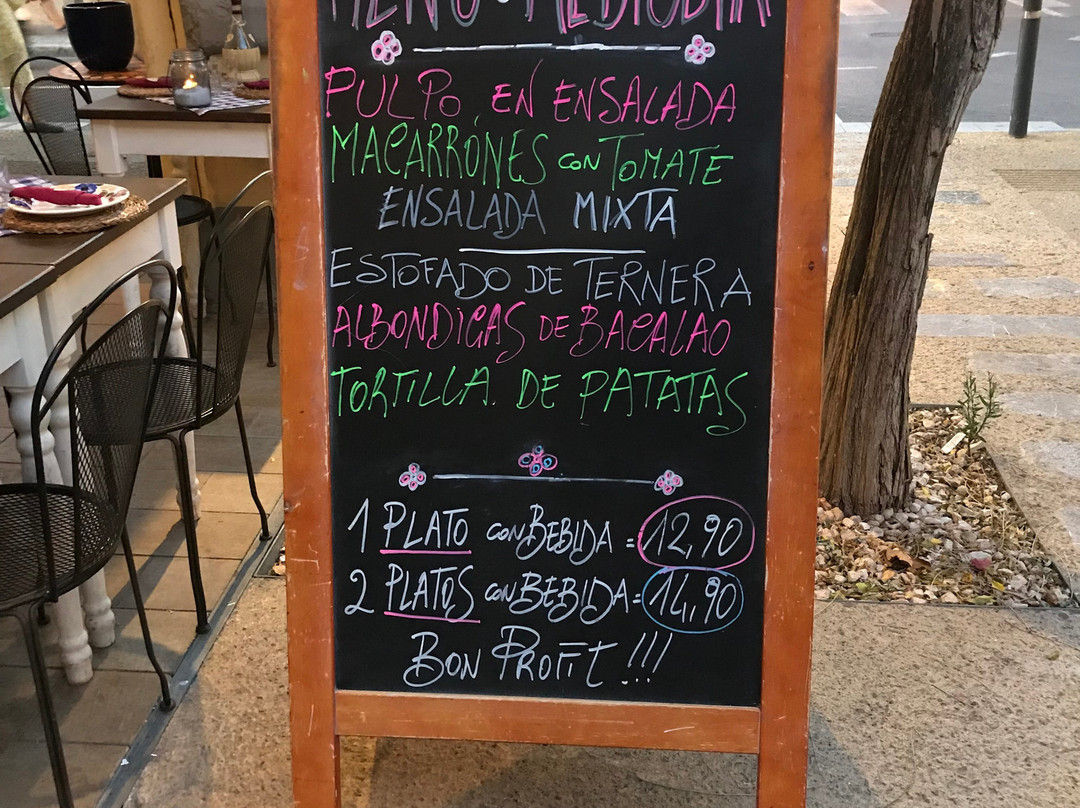 MENÚ · MEDIODÍA
PULPO EN ENSALADA
MACARRÓNES CON TOMATE
ENSALADA MIXTA
ESTOFADO DE TERNERA
ALBONDIGAS DE BACALAO
TORTILLA. DE PATATAS
1 PLATO CON BEBIDA = 12,90
2 PLATOS CON BEBIDA = 14,90
BON PROFIT !!!